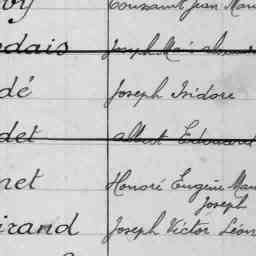 Toussaint Jean
dais Joseph
dé Joseph Isidore
det Albert Edouard
net Honoré Eugène
Joseph
irand Joseph Victor Léon